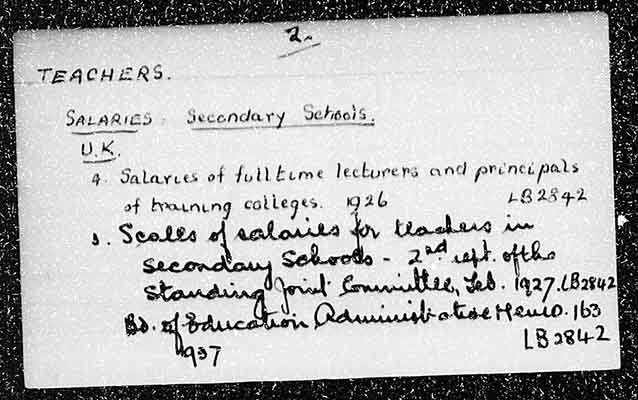 2.
TEACHERS.
SALARIES. Secondary Schools.
U.K.
4. Salaries of fulltime lecturers and principals
of training colleges. 1926 LB2842
5. Scales of salaries for teachers in
secondary Schools - 2nd rept. of the
Standing Joint Committee, Feb. 1927. LB2842
Bd. of Education Administrative Memo. 163
1937 LB2842